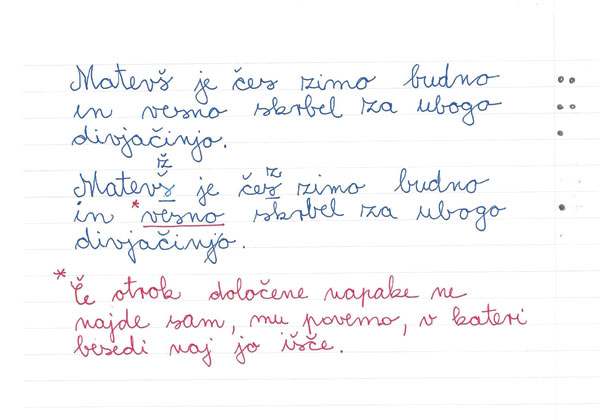 Matevš je čes zimo budno
in vesno skrbel za ubogo
divjačinjo.
ž z
Matevš je čes zimo budno
in *vesno skrbel za ubogo
divjačinjo.
* Če otrok določene napake ne
najde sam, mu povemo, v kateri
besedi naj jo išče.